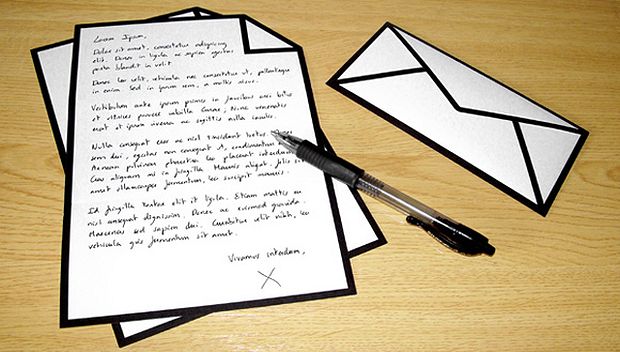 Lorem Ipsum,
Dolor sit amet, consectetur adipiscing
elit. Donec in ligula ac sapien egestas
porta blandit in velit.
Donec leo velit, vehicula nec consectetur ut, pellentesque
in enim. Sed in ipsum sem, a mattis dolor.
Vestibulum ante ipsum primis in faucibus orci luctus
et ultrices posuere cubilia Curae; Nunc venenatis
erat et ipsum viverra ac sagittis nulla iaculis.
Nulla consequat erat ac nisl tincidunt tortor
sem dui, egestas non consequat a, condimentum
Aenean pulvinar pharetra leo placerat interdum.
Cras aliquam mi in fringilla Mauris aliquet.
amet ullamcorper fermentum, leo suscipit mauris.
Id fringilla tortor elit et ligula. Etiam mattis ex
nisl consequat dignissim. Donec ac euismod gravida.
Maecenas sed sapien dui. Curabitur elit nibh, leo
vehicula quis fermentum sit amet.
Vivamus interdum,
X